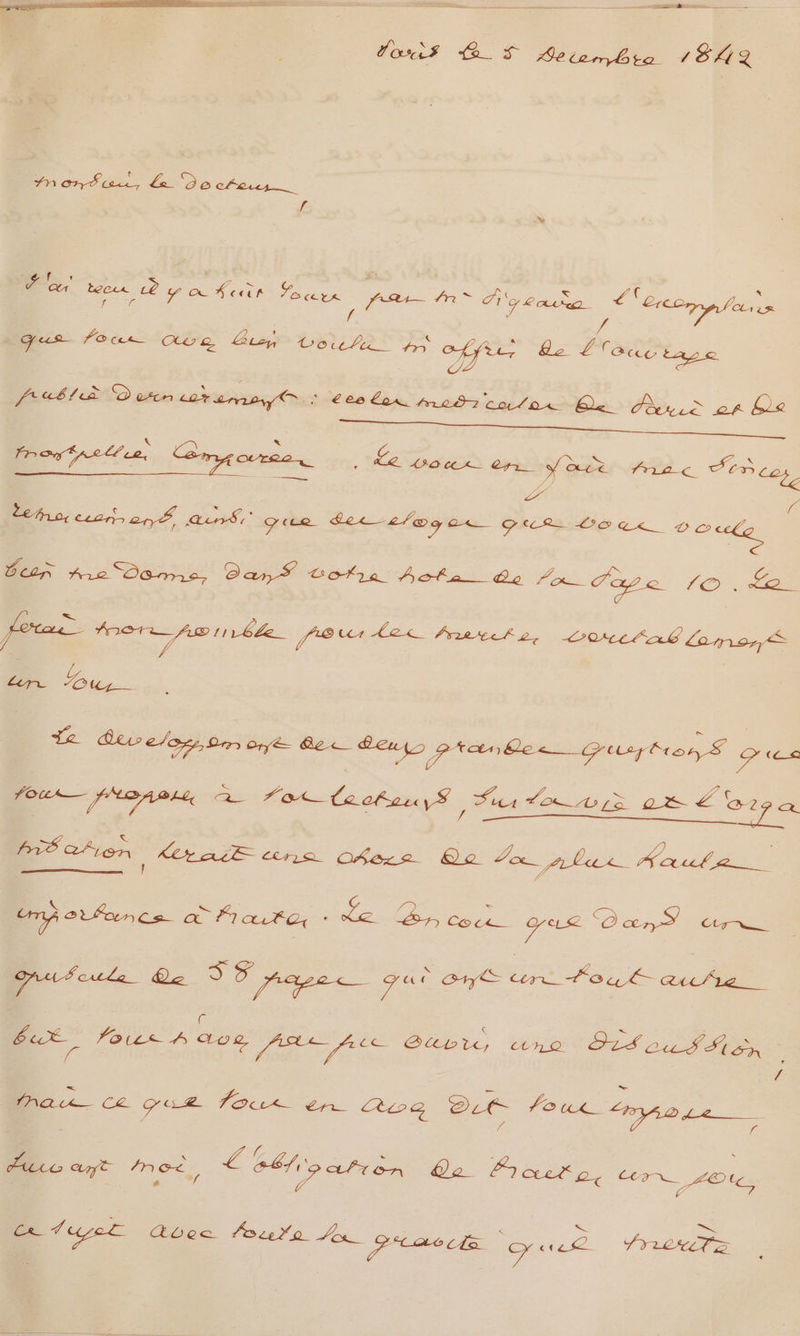 Paris le 5 décembre 1842
Monsieur le Docteur
J'ai reçu il y a huit jours par Mr Sigeauda l'exemplaire
que vous avez bien voulu m'offrir de l'ouvrage
publié Dernièrement : écoles médicales de Paris et de
Montpellier Comparées. Je vous en fais mes sincères
remerciements, ainsi que des éloges que vous voulez
bien me donner, dans votre note de la page 10. Je
ferai mon possible pour les mériter véritablement
un jour.
Le développement des deux grandes questions que
vous proposez à vos lecteurs, sur la vie et l'orga
nisation, serait une chose de la plus haute
importance à traiter. Je conçois que dans un
opuscule de 58 pages qui ont un tout autre
but, vous n'avez pas pu ouvrir une discussion
mais ce que vous en avez dit vous impose
suivant moi, l'obligation de traiter un jour,
ce sujet avec toute la gravité qu'il mérite.